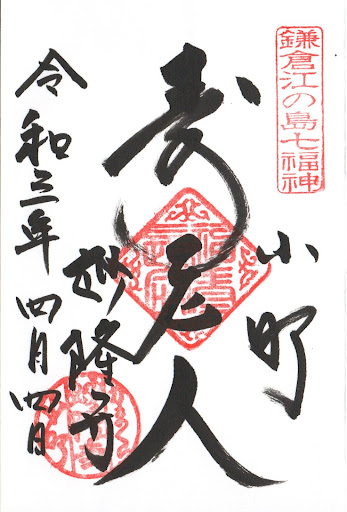 鎌倉江の島七福神
小町
寿老人
妙隆寺
令和三年四月四日